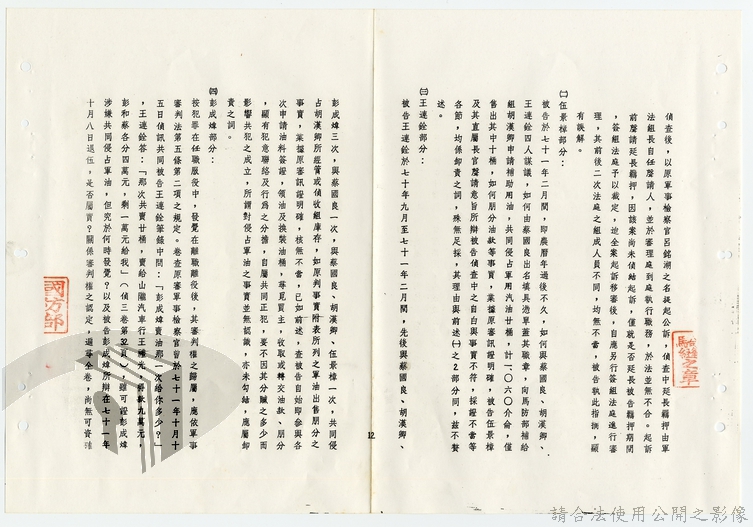 偵查後，以原軍事檢察官呂銘湖之名提起公訴，偵查中延長羈押由軍
法組長自任聲請人，並於審理庭到庭執行職務，於法並無不合。起訴
前聲請延長羈押，因該案尚未偵結起訴，僅就是否延長被告羈押期間
，簽組法庭予以裁定，迨全案起訴移審後，自應另行簽組法庭進行審
理，其前後二次法庭之組成人員不同，均無不當，被告執此指摘，顯
有誤解。
㈡伍景樑部分：
被告於七十一年二月間，即農曆年過後不久，如何與蔡國良、胡漢卿、
王連銓四人謀議，如何由蔡國良出名填具憑單蓋其職章，向馬防部補給
組胡漢卿申請補助用油，共同侵占軍用汽油廿桶，計一、〇六〇介侖，僅
售出其中十桶，如何朋分油款等事實，業據原審訊證明確，被告伍景樑
及其直屬長官聲請意旨所辯被告偵查中之自白與事實不符，採證不當等
各節，均係卸責之詞，殊無足採，其理由與前述㈠之2部分同，茲不贅
述。
㈢王連銓部分：
被告王連銓於七十年九月至七十一年二月間，先後與蔡國良、胡漢卿、
12
彭成煒三次，與蔡國良一次，與蔡國良、胡漢卿、伍景樑一次，共同侵
占胡漢卿所經管或偵收組庫存，如原判事實附表所列之軍油出售朋分之
事實，業據原審訊證明確，核無不當，已如前述，查被告自始即參與各
次申請油料簽證，領油及換裝油桶，尋覓買主，收取或轉交油款、朋分
，顯有犯意聯絡及行為之分擔，自屬共同正犯，要不因其分贓之多少而
影響共犯之成立，所謂對侵占軍油之事實並無認識，亦未勾結，應屬卸
責之詞。
㈣彭成煒部分：
按犯罪在任職服役中，發覺在離職離役後，其審判權之歸屬，應依軍事
審判法第五條第二項之規定。卷查原審軍事檢察官曾於七十一年十月十
五日偵訊共同被告王連銓筆錄中問：「彭成煒賣油那一次給你多少？」
，王連銓答：「那次共賣廿桶，賣給山隴汽車行王鍾光，得款九萬元，
彭和蔡各分四萬元，剩一萬元給我」（偵三卷第32頁），雖可證彭成煒
涉嫌共同侵占軍油，但究於何時發覺？以及被告彭成煒所辯在七十一年
十月八日退伍，是否屬實？關係審判權之認定，遍尋全卷，尚無可資確
國防部
騎縫之章
請合法使用公開之影像